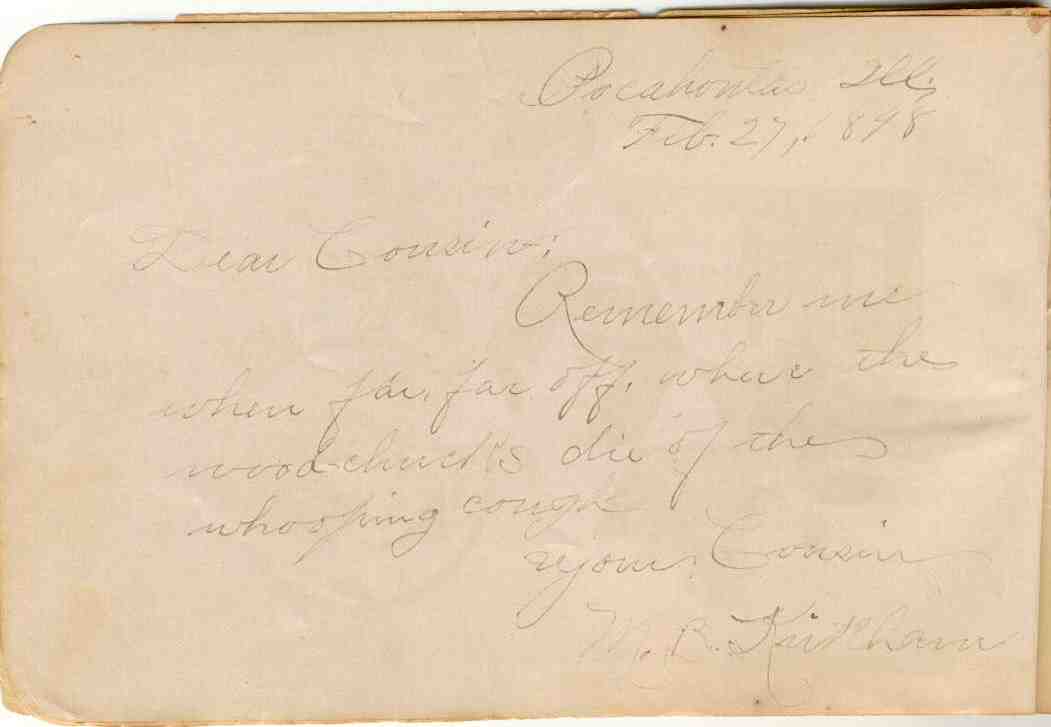 Pocahontas Ill.
Feb. 27, 1898
Dear Cousin:
Remember me
when far, far off, where the
woodchucks die of the
whooping cough
Your Cousin
M. B. Kirkham